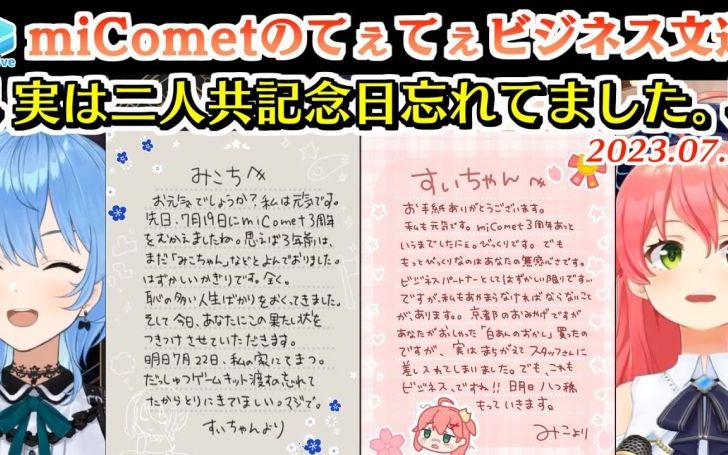 miCometのてぇてぇビジネス文通
実は二人共記念日忘れてました。
2023.07.
みこちへ
お元気でしょうか?私は元気です。
先日、7月19日にmiComet3周年
をむかえましたね。思えば3年前は、
まだ「みこちゃん」などとよんでおりました。
はずかしいかぎりです。全く、
恥の多い人生ばかりをおくってきました。
そして今日、あなたにこの果たし状を
つきつけさせていただきます。
明日7月22日、私の家にてまつ。
だっしゅつゲームキット渡すの忘れて
たからとりにきてほしい。マジで。
すいちゃんより
すいちゃんへ
お手紙ありがとうございます。
私も元気です。miComet3周年あっと
いうまでしたにぇ。びっくりです。でも
もっとびっくりなのはあなたの無感心さです。
ビジネスパートナーとしてはずかしい限りです…
ですが、私もあやまらなければならないこと
が、あります。。京都のおみやげですが
あなたがおしゃった「白あんのおかし」買ったの
ですが、実はまちがえてスタッフさんに
差し入れてしまいました。でも、これも
ビジネス、ですね!!明日八つ橋
もっていきます。
みこより